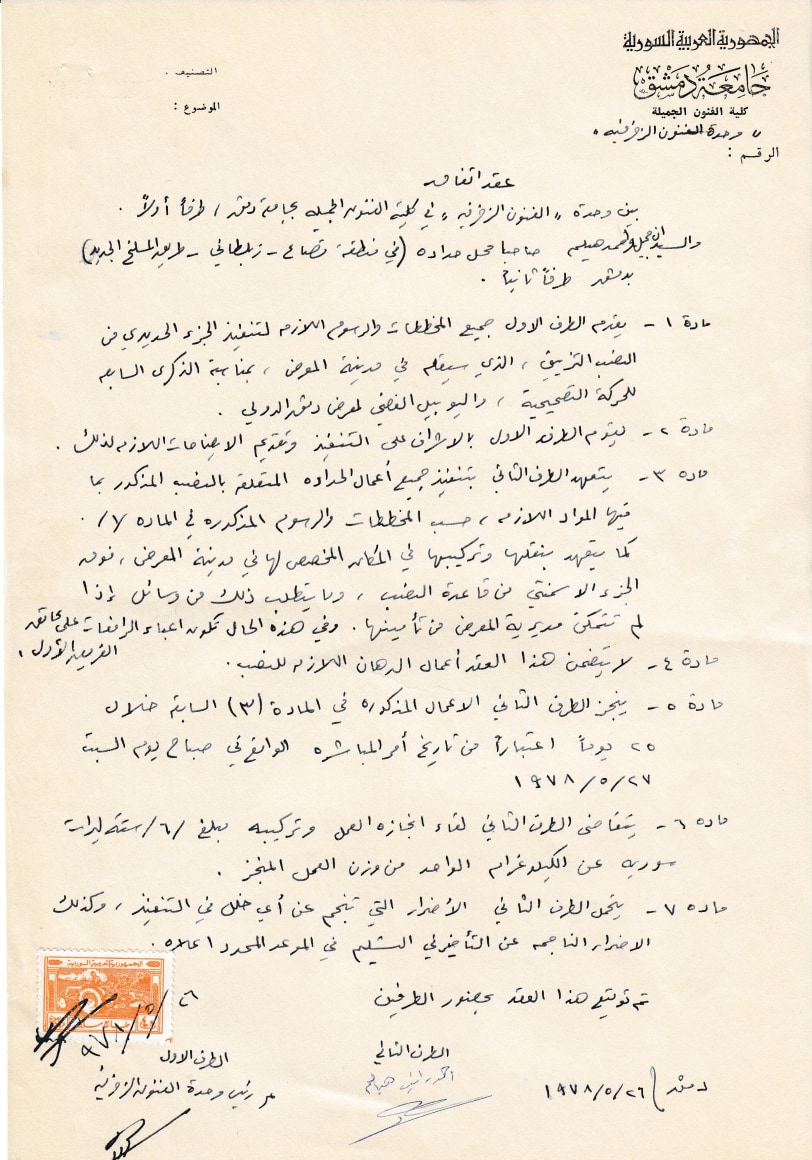 الجمهورية العربية السورية
جامعة دمشق
كلية الفنون الجميلة
« وحدة الفنون الزخرفية »
الرقم :
التصنيف :
الموضوع :
عقد اتفاق
بين وحدة « الفنون الزخرفية » في كلية الفنون الجميلة بجامعة دمشق / طرفاً أولاً .
والسيدان جميل وأحمد هيلم صاحبا محل حداده (في منطقة قصاع - زبلطاني - طريق المسلخ الجديد)
بدمشق طرفاً ثانياً .
مادة ١ - يقدم الطرف الاول جميع المخططات والرسوم اللازمه لتنفيذ الجزء الحديدي من
النصب التزييني ، الذي سيقام في مدينة المعرض ، بمناسبة الذكرى السابعه
للحركة التصحيحية ، واليوبيل الفضي لمعرض دمشق الدولي .
مادة ٢ - يقوم الطرف الاول بالاشراف على التنفيذ وتقديم الايضاحات اللازمه لذلك .
ماده ٣ - يتعهد الطرف الثاني بتنفيذ جميع أعمال الحداده المتعلقة بالنصب المذكور بما
فيها المواد اللازمه ، حسب المخططات والرسوم المذكوره في الماده /١/ .
كما يتعهد بنقلها وتركيبها في المكان المخصص لها في مدينة المعرض ، فوق
الجزء الاسمنتي من قاعدة النصب ، وما يتطلب ذلك من وسائل إذا
لم تتمكن مديرية المعرض من تأمينها . وفي هذه الحال تكون اعباء الرافعات على عاتق
الفريق الأول .
مادة ٤ - لا يتضمن هذا العقد أعمال الدهان اللازمه للنصب .
مادة ٥ - ينجز الطرف الثاني الاعمال المذكوره في المادة (٣) السابقه خلال
٢٥ يوماً اعتباراً من تاريخ أمر المباشره الواقع في صباح يوم السبت
٢٧/٥/١٩٧٨
ماده ٦ - يتقاضى الطرف الثاني لقاء انجازه العمل وتركيبه مبلغ /٦/ ستة ليرات
سوريه عن الكيلوغرام الواحد من وزن العمل المنجز .
ماده ٧ - يتحمل الطرف الثاني الأضرار التي تنجم عن أي خلل في التنفيذ ، وكذلك
الاضرار الناجمه عن التأخير في التسليم في الموعد المحدد اعلاه .
تم توقيع هذا العقد بحضور الطرفين
الجمهورية العربية السورية
٢٦/٥/٩٧٨
الطرف الاول
رئيس وحدة الفنون الزخرفية
الطرف الثاني
دمشق / ٢٦/٥/١٩٧٨